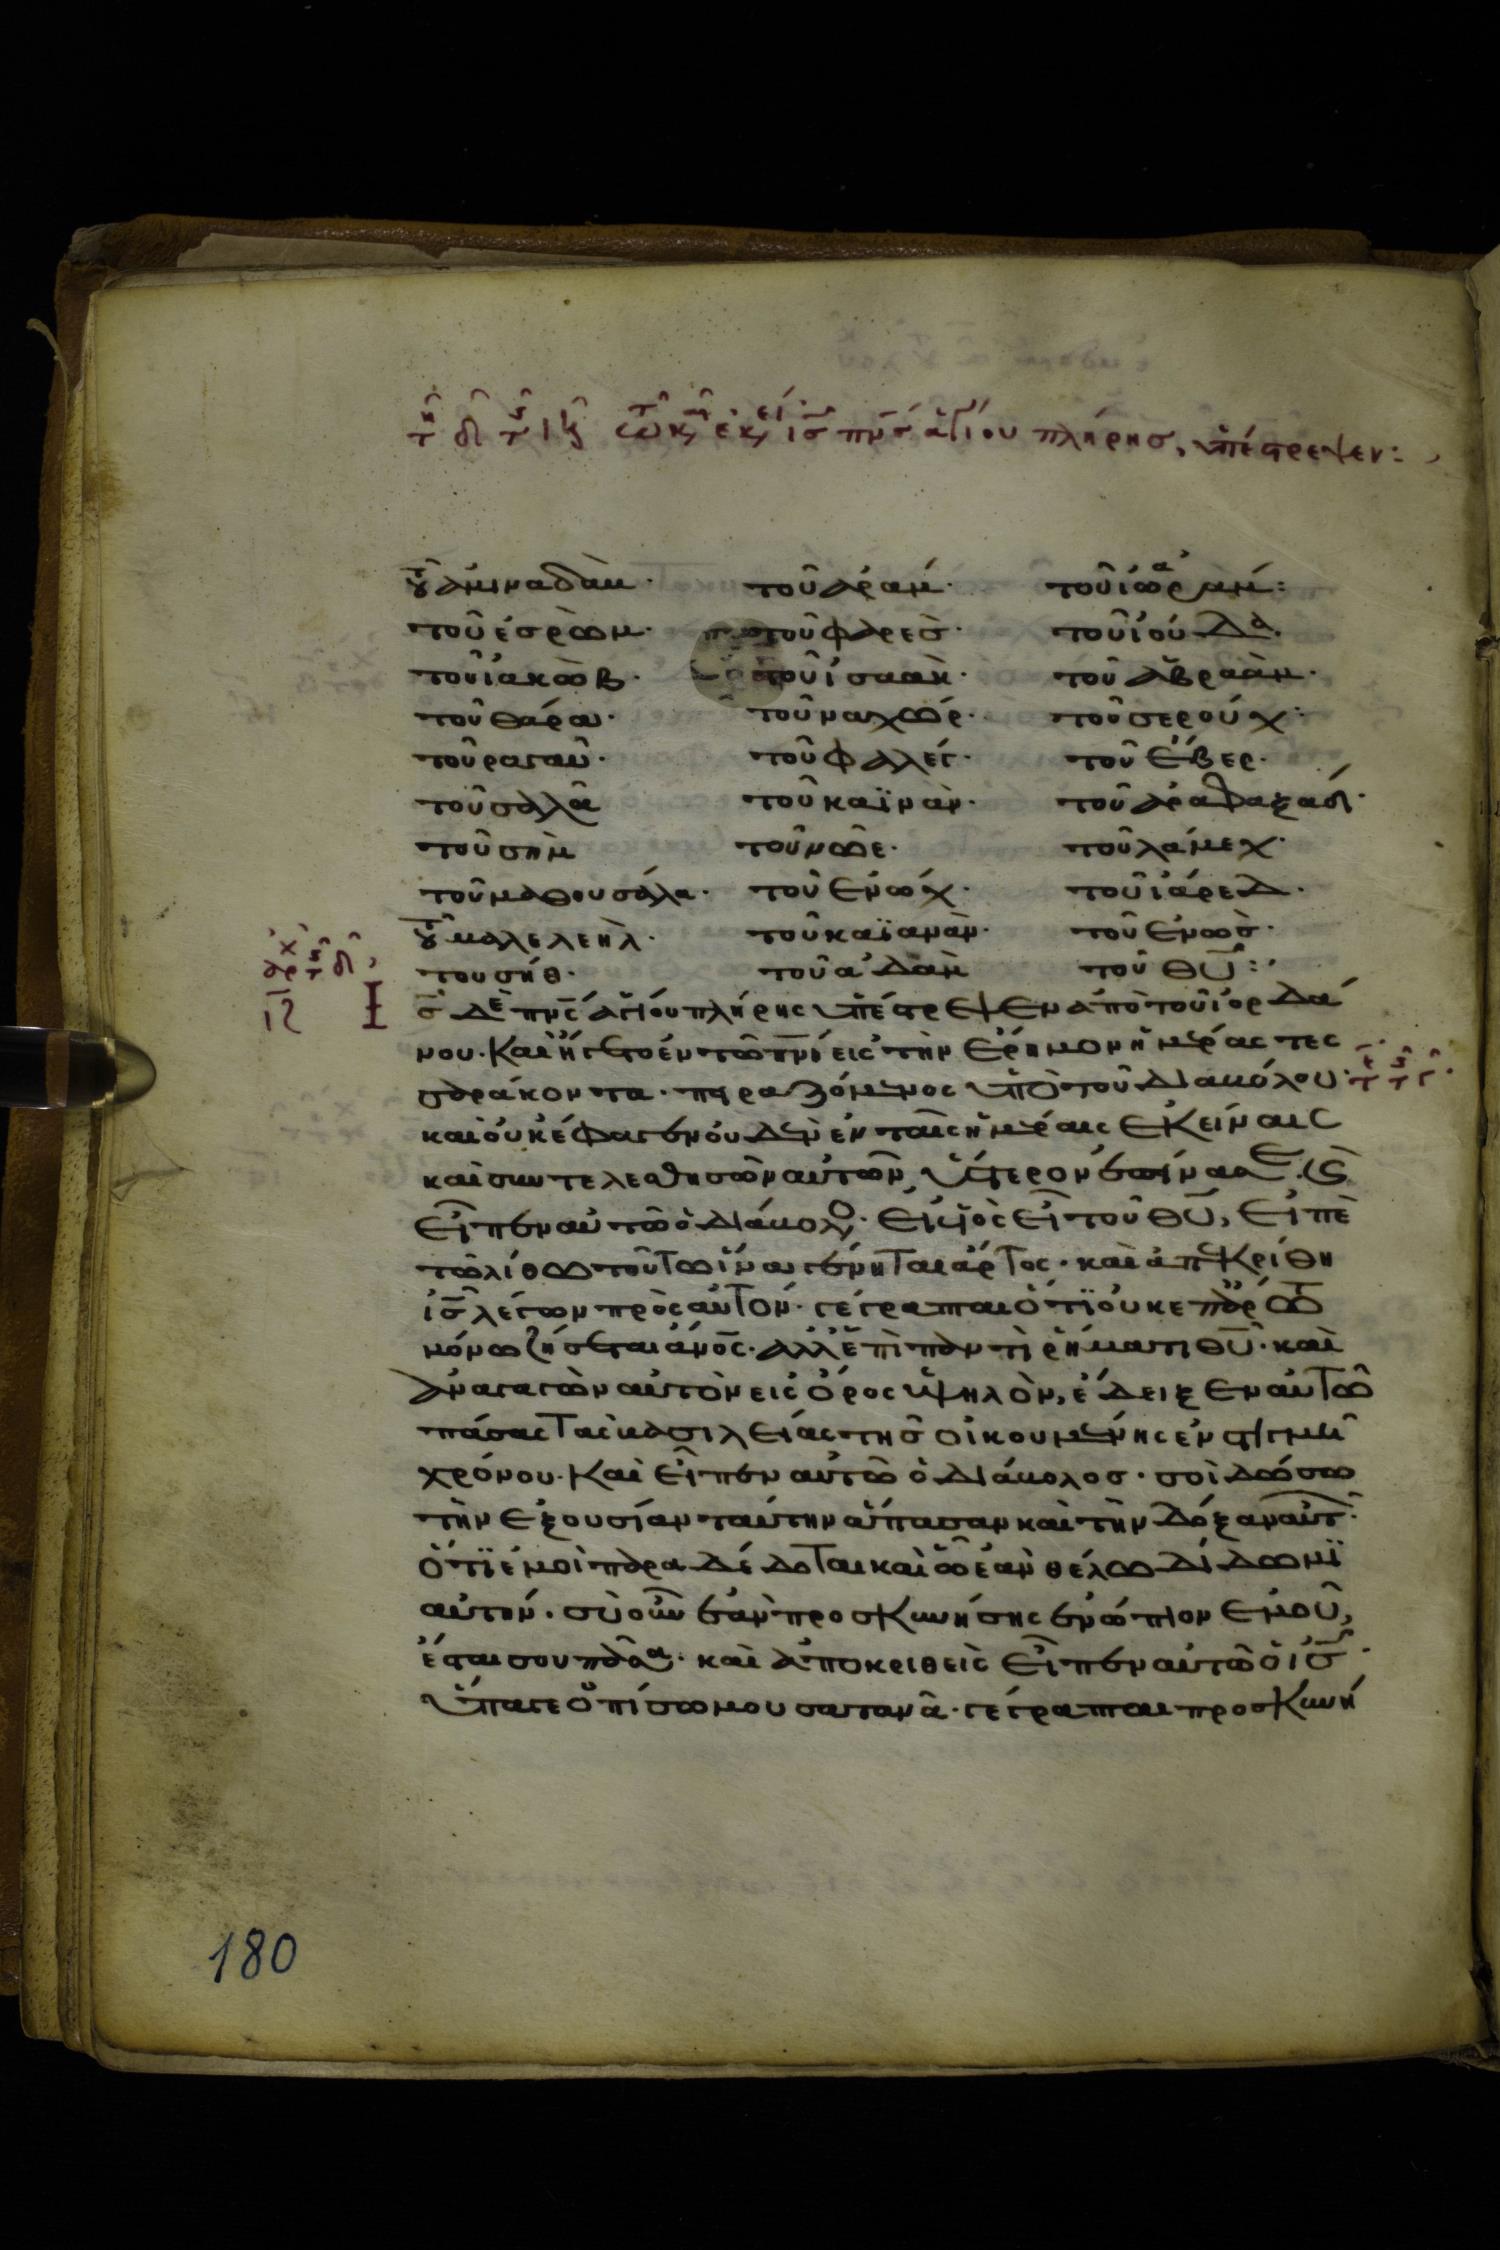 τῇ δ τῆς ιζ τῷ κ ἐκ ις πνς ἁγίου πλήρης, ὑπέστρεψεν:
τοῦ ἀμιναδὰμ· τοῦ ἀράμ· τοῦ ἰωράμ:
τοῦ ἐσρὼμ· τοῦ φαρὲς· τοῦ ἰούδα.
τοῦ ἰακὼβ· τοῦ ἰσαὰκ· τοῦ ἀβραὰμ·
τοῦ θάρα· τοῦ ναχώρ· τοῦ σερούχ:
τοῦ ραγαῦ· τοῦ φαλέγ· τοῦ ἔβερ·
τοῦ σαλᾶ τοῦ καϊνὰν· τοῦ ἀρφαξάδ·
τοῦ σὴμ τοῦ νῶε· τοῦ λάμεχ·
τοῦ μαθουσάλα· τοῦ ἐνώχ· τοῦ ἰάρεδ·
τοῦ μαλελεὴλ· τοῦ καϊανὰν· τοῦ ἐνὼς·
του σήθ· τοῦ ἀδὰμ τοῦ θυ:
ἀρχ τῆς δ
ις
Ις δὲ πνς ἁγίου πλήρης ὑπέστρεψεν ἀπὸ τοῦ ἰορδά
νου· Καὶ ἤγετο ἐν τῶ πνι εἰς τὴν ἔρημον ἡμέρας τες
σαράκοντα· πειραζόμενος ὑπὸ τοῦ διαβόλου·
καὶ οὐκ ἔφαγεν οὐδὲν ἐν ταῖς ἡμέραις ἐκείναις
καὶ συντελεσθησῶν αὐτῶν, ὕστερον ἐπείνασε. Καὶ
εἶπεν αὐτῶ ὁ διάβολος· εἰ υἱὸς εἶ τοῦ θυ, εἰπὲ
τῶ λίθω τούτω ἵνα γένηται ἄρτος· καὶ ἀπεκρίθη
ις λέγων πρὸς αὐτόν· γέγραπται ὅτι οὐκ ἐπ ἄρτω
μόνω ζήσεται ἄνος· ἀλλ ἐπὶ παντὶ ῥήματι θυ· καὶ
ἀναγαγὼν αὐτὸν εἰς ὄρος ὑψηλὸν, ἔδειξεν αὐτῶ
πάσας τὰς βασιλείας τῆς οἰκουμένης ἐν στιγμῆ
χρόνου· Καὶ εἶπεν αὐτῶ ὁ διάβολος· σοὶ δώσω
τὴν ἐξουσίαν ταύτην ἅπασαν καὶ τὴν δόξαν αὐτ·
ὅτι ἐμοὶ παραδέδοται καὶ ὧ ἐὰν θέλω δίδωμι
αὐτήν· σὺ οὖν ἐὰν προσκυνήσης ἐνώπιον ἐμοῦ,
ἔσται σου πᾶσα· καὶ ἀποκριθεὶς εἶπεν αὐτῶ ὁ ις·
ὕπαγε ὀπίσω μου σατανᾶ· γέγραπται προσκυνή
180